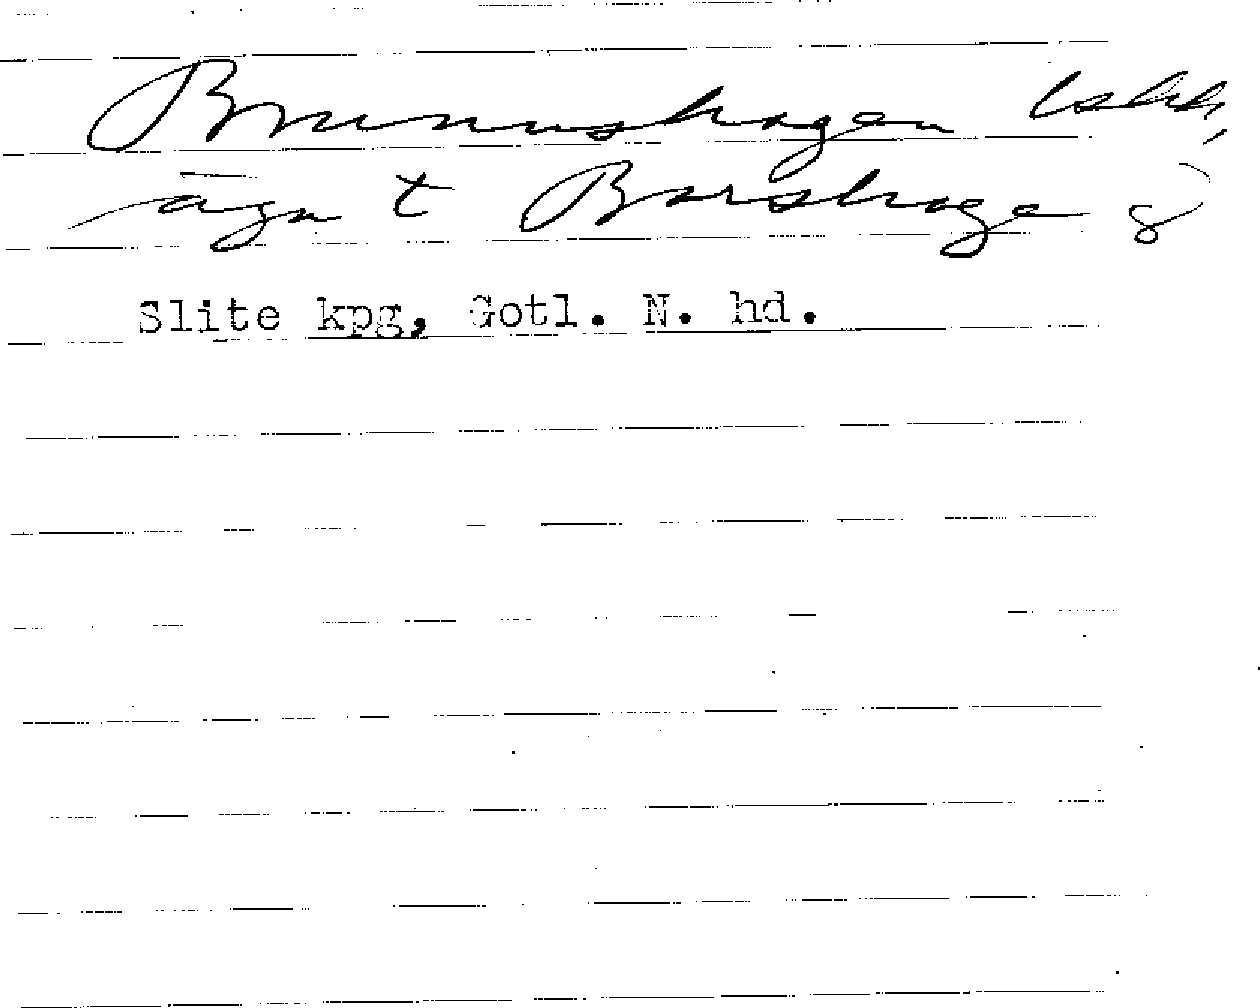 Brunnshagen
äga t Barshage g
Slite kpg, Gotl. N. hd.